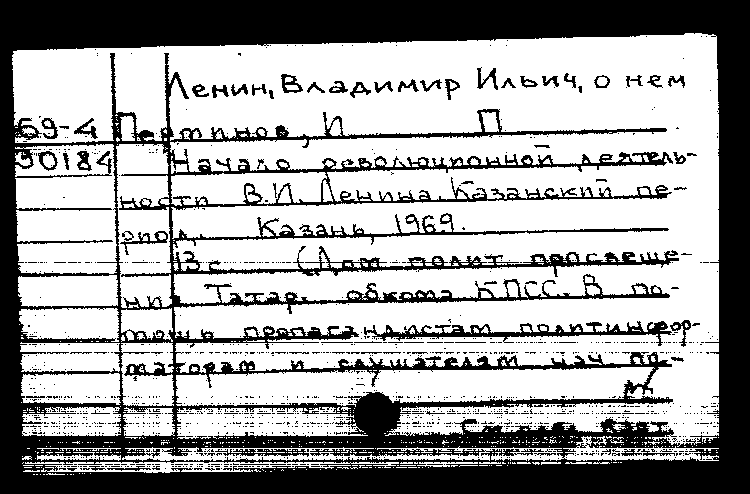 Ленин, Владимир Ильич, о нем
69-4 Пертинов, И П
30184 Начало революционной деятель-
ности В.И. Ленина. Казанский пе-
риод. Казань, 1969.
13 с. (Дом полит просвеще-
ния Татар. обкома КПСС. В по-
мощь пропагандистам, политинфор-
маторам и слушателям нач по-